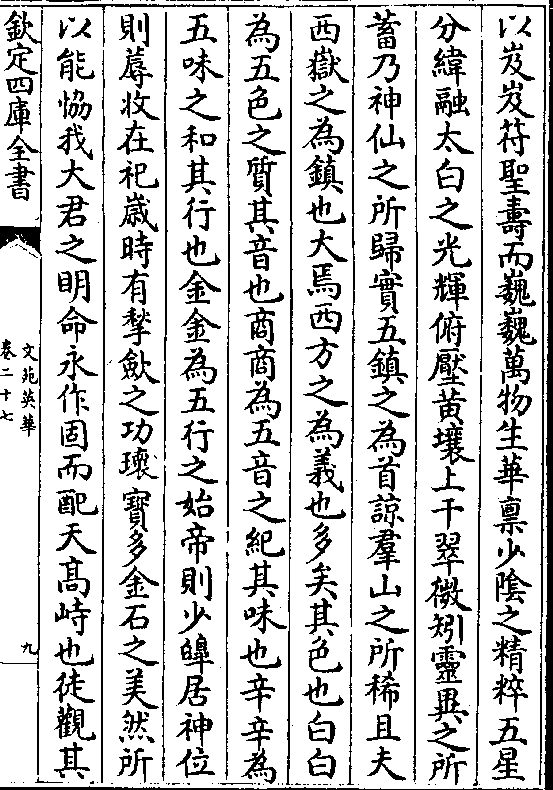 以岌岌符聖壽而巍巍萬物生華禀少陰之精粹五星
分緯融太白之光輝俯壓黄壤上干翠微矧靈異之所
蓄乃神仙之所歸實五鎮之為首諒羣山之所稀且夫
西嶽之為鎮也大焉西方之為義也多矣其色也白白
為五色之質其音也商商為五音之紀其味也辛辛為
五味之和其行也金金為五行之始帝則少皥居神位
則蓐收在祀嵗時有揫歛之功瓌寳多金石之美然所
以能恊我大君之明命永作固而配天髙峙也徒觀其
欽定四庫全書
文苑英華
卷二十七
九